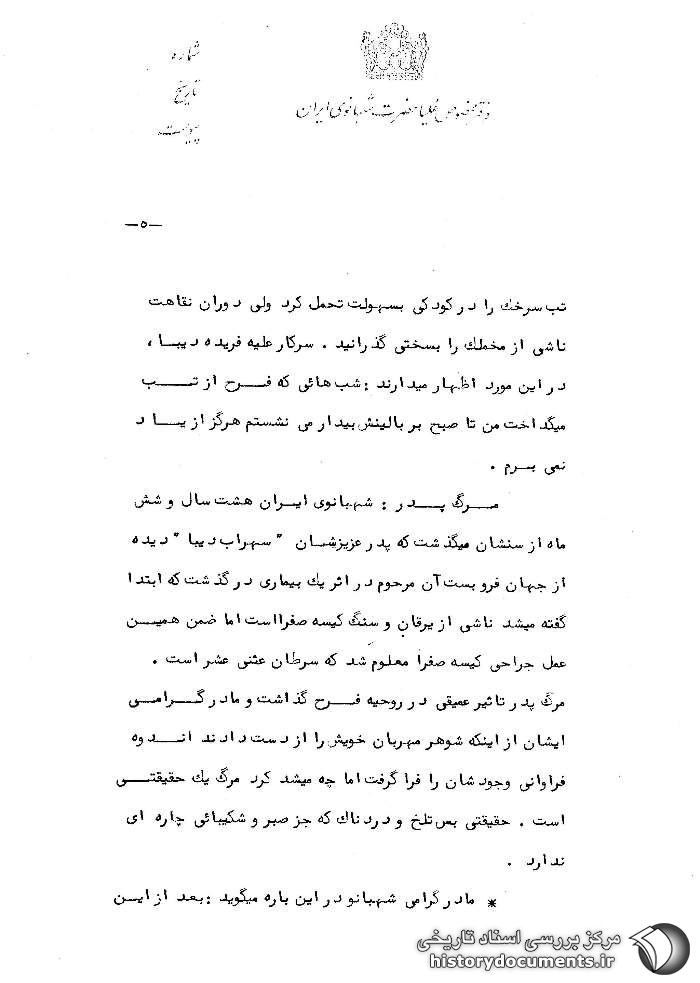 شماره
تاریخ
پیوست
دفتر مخصوص علیاحضرت شهبانوی ایران
—۵—
تب سرخك را در كودكی بسهولت تحمل كرد ولی دوران نقاهت
ناشی از مخملك را بسختی گذرانید . سركار علیه فریده دیبا ،
در این مورد اظهار میدارند : شب هائی كه فرح از تب
میگداخت من تا صبح بر بالینش بیدار می نشستم هرگز از یاد
نمی برم .
مرگ پدر : شهبانوی ایران هشت سال و شش
ماه از سنشان میگذشت كه پدر عزیزشان " سهراب دیبا " دیده
از جهان فرو بست آن مرحوم در اثر یك بیماری در گذشت كه ابتدا
گفته میشد ناشی از یرقان و سنگ كیسه صفرا است اما ضمن همین
عمل جراحی كیسه صفرا معلوم شد كه سرطان عثنی عشر است .
مرگ پدر تاثیر عمیقی در روحیه فرح گذاشت و مادر گرامی
ایشان از اینكه شوهر مهربان خویش را از دست دادند اندوه
فراوانی وجودشان را فرا گرفت اما چه میشد كرد مرگ یك حقیقتی
است . حقیقتی بس تلخ و دردناك كه جز صبر و شكیبائی چاره ای
ندارد .
* مادر گرامی شهبانو در این باره میگوید : بعد از این
مرکز بررسی اسناد تاریخی
historydocuments.ir